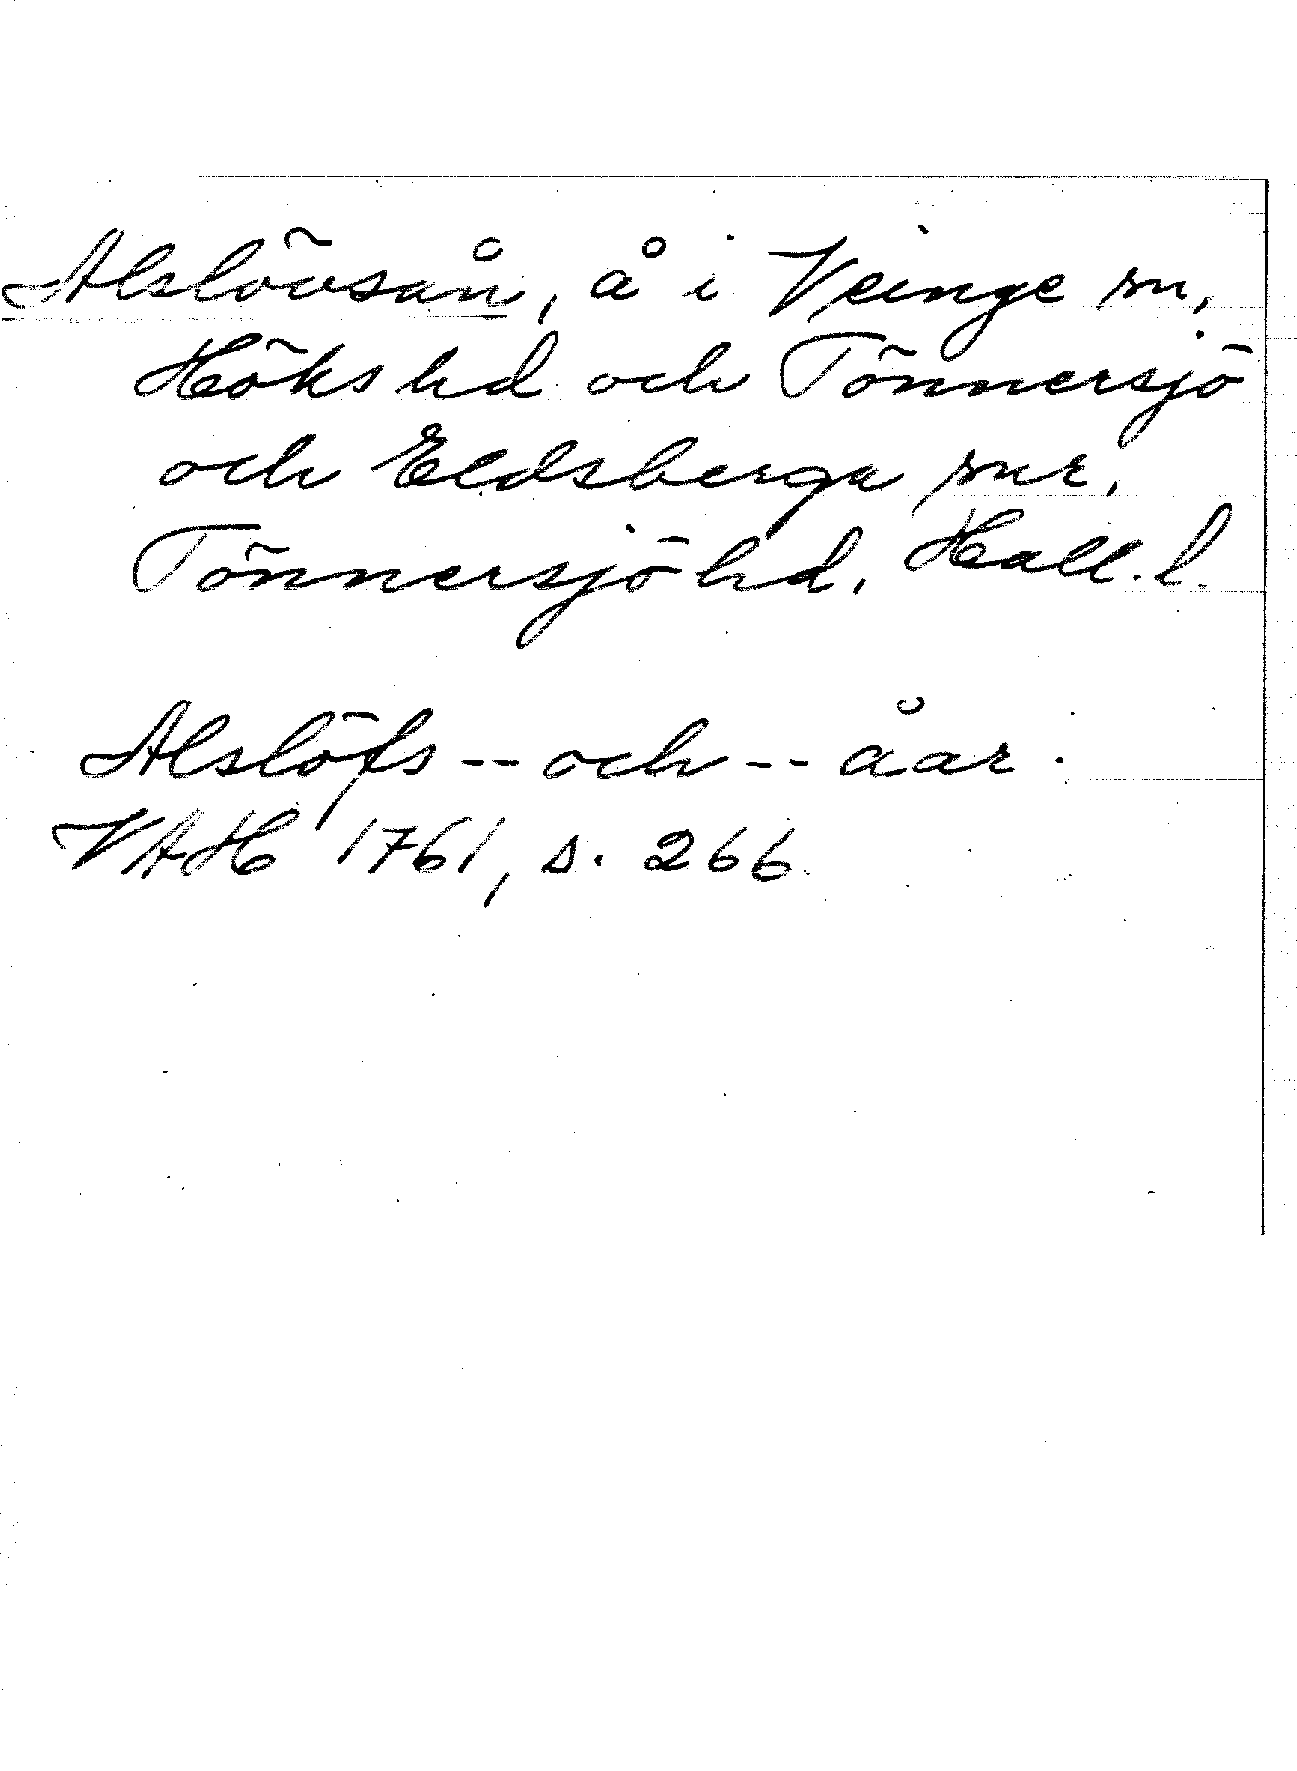 Alslövsån, å i Veinge sn,
Höks hd och Tönnersjö
och Eldsberga snr,
Tönnersjö hd, Hall. l.
Alslöfs -- och -- åar.
VAH 1761, s. 266